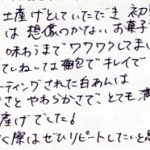 土産げとしていただき 初
は 想像のつかない お菓子
味わうまで ワクワクしてまい
ていねいな 梱包で キレイで
ーティングされた 白あんは
さと やわらかさで とても 満
産げでした♪
く際は ぜひ リピートしたいと